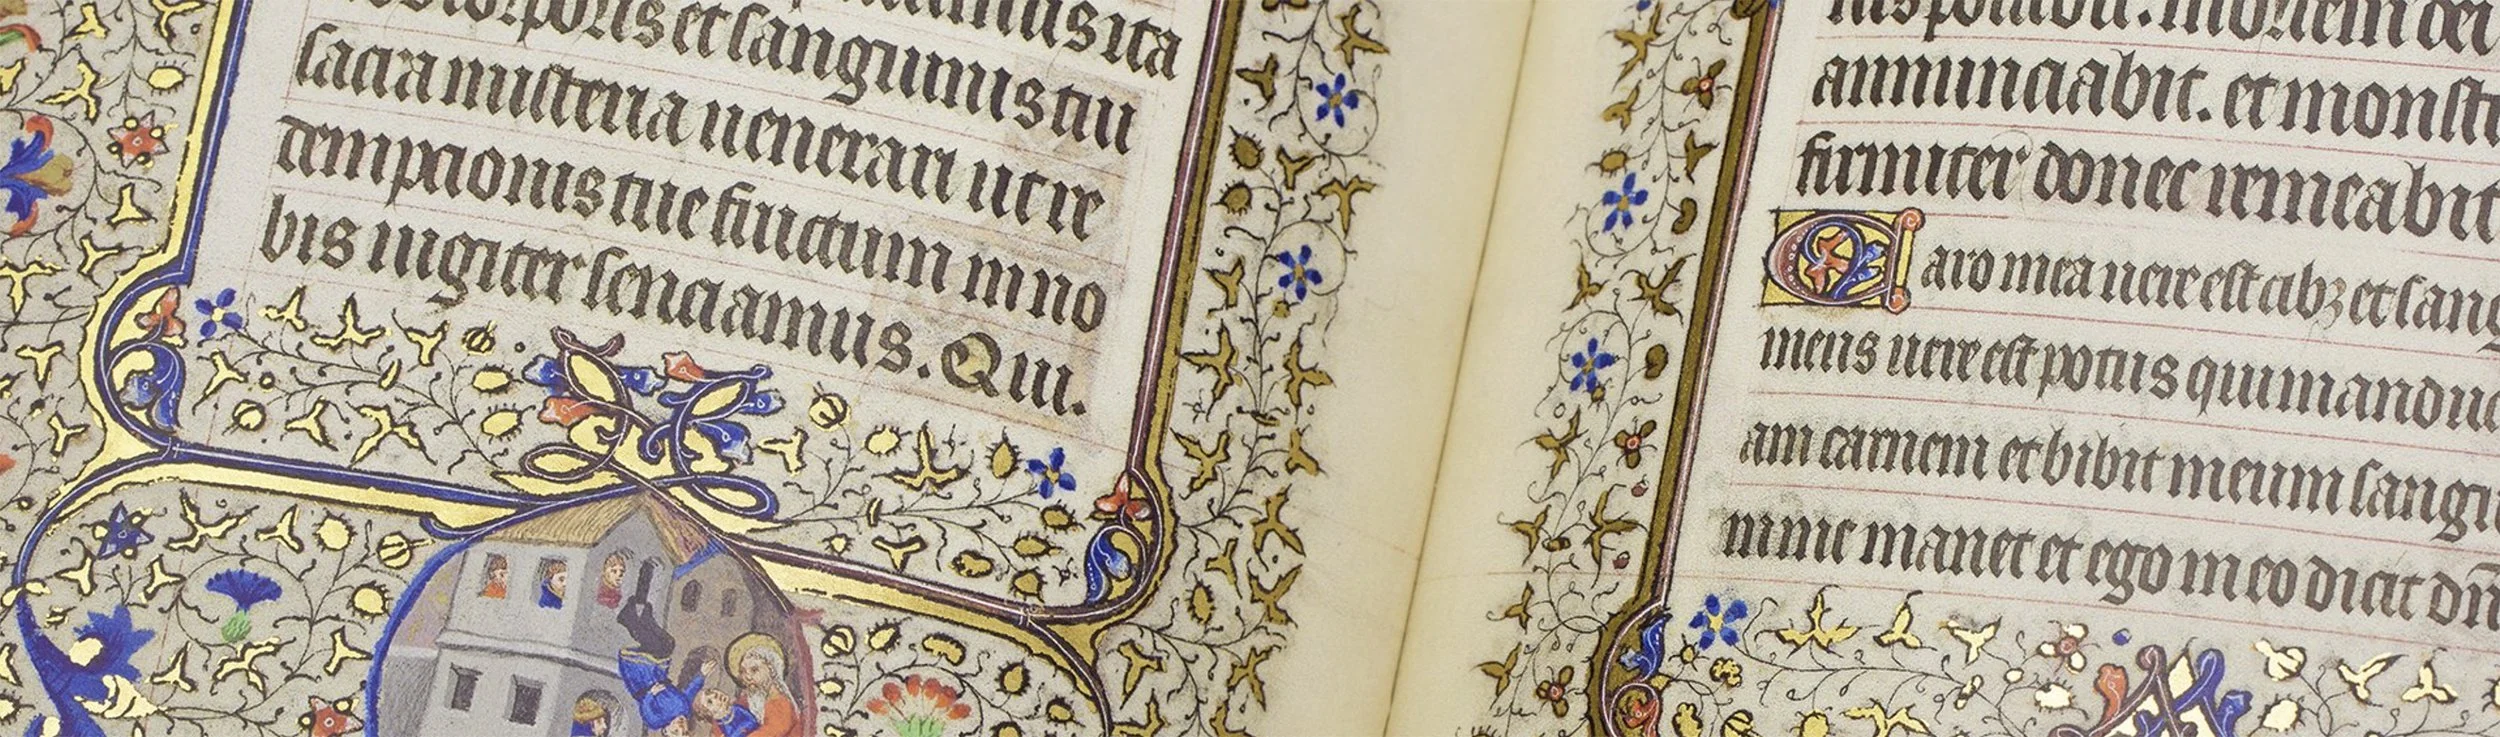 ita
corporis et sanguinis tui
sacra misteria uenerari ut re
dempcionis tue fructum in no
bis iugiter senciamus. Qui.
mortem dei
annunciabit. et monst
firmiter donec remeabit
Caro mea uere est cibꝫ et sang
meus uere est potus qui manduc
am carnem et bibit meum sangu
in me manet et ego in eo dicit dn̄